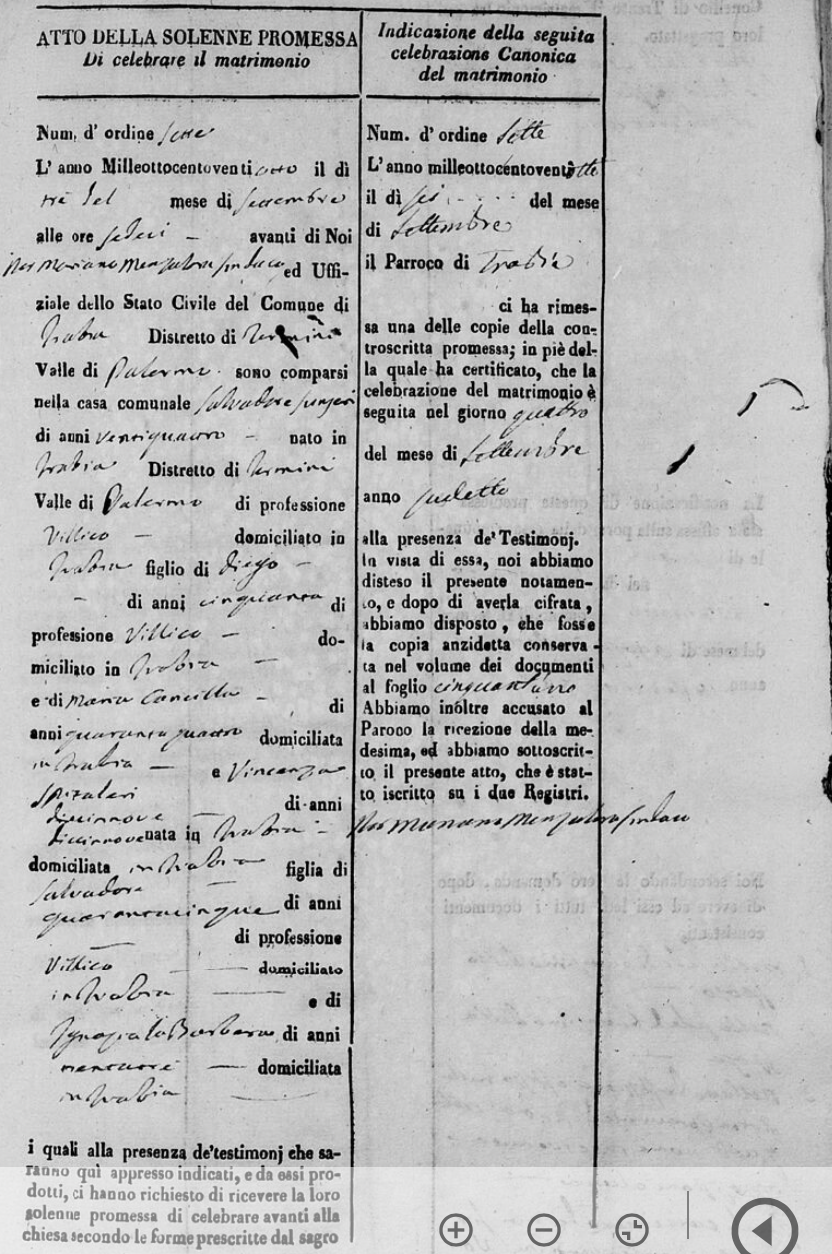 ATTO DELLA SOLENNE PROMESSA
Di celebrare il matrimonio
Num. d' ordine sette
L' anno Milleottocentoventi otto il dì
tre del mese di settembre
alle ore sedeci avanti di Noi
sindaco ed Uffi-
ziale dello Stato Civile del Comune di
Trabia Distretto di Termini
Valle di Palermo sono comparsi
nella casa comunale Salvadore
di anni ventiquattro nato in
Trabia Distretto di Termini
Valle di Palermo di professione
Villico domiciliato in
Trabia figlio di Diego
di anni cinquanta di
professione Villico do-
miciliato in Trabia
e di Maria di
anni quaranta quattro domiciliata
in Trabia e Vincenza
di anni
diecinnove
diecinnove nata in Trabia
domiciliata in Trabia figlia di
Salvadore
quarantacinque di anni
di professione
Villico domiciliato
in Trabia e di
Ignazia La Barbera di anni
domiciliata
in Trabia
i quali alla presenza de'testimonj che sa-
ranno quì appresso indicati, e da essi pro-
dotti, ci hanno richiesto di ricevere la loro
solenne promessa di celebrare avanti alla
chiesa secondo le forme prescritte dal sagro
Indicazione della seguita
celebrazione Canonica
del matrimonio
Num. d' ordine Sette
L' anno milleottocentoventi otto
il dì sei del mese
di Settembre
il Parroco di Trabia
ci ha rimes-
sa una delle copie della con-
troscritta promessa; in piè del-
la quale ha certificato, che la
celebrazione del matrimonio è
seguita nel giorno quattro
del mese di Settembre
anno sudetto
alla presenza de' Testimonj.
In vista di essa, noi abbiamo
disteso il presente notamen-
to, e dopo di averla cifrata,
abbiamo disposto, che fosse
la copia anzidetta conserva-
ta nel volume dei documenti
al foglio cinquantuno
Abbiamo inoltre accusato al
Paroco la ricezione della me-
desima, ed abbiamo sottoscrit-
to il presente atto, che è stat-
to iscritto su i due Registri.
sindaco